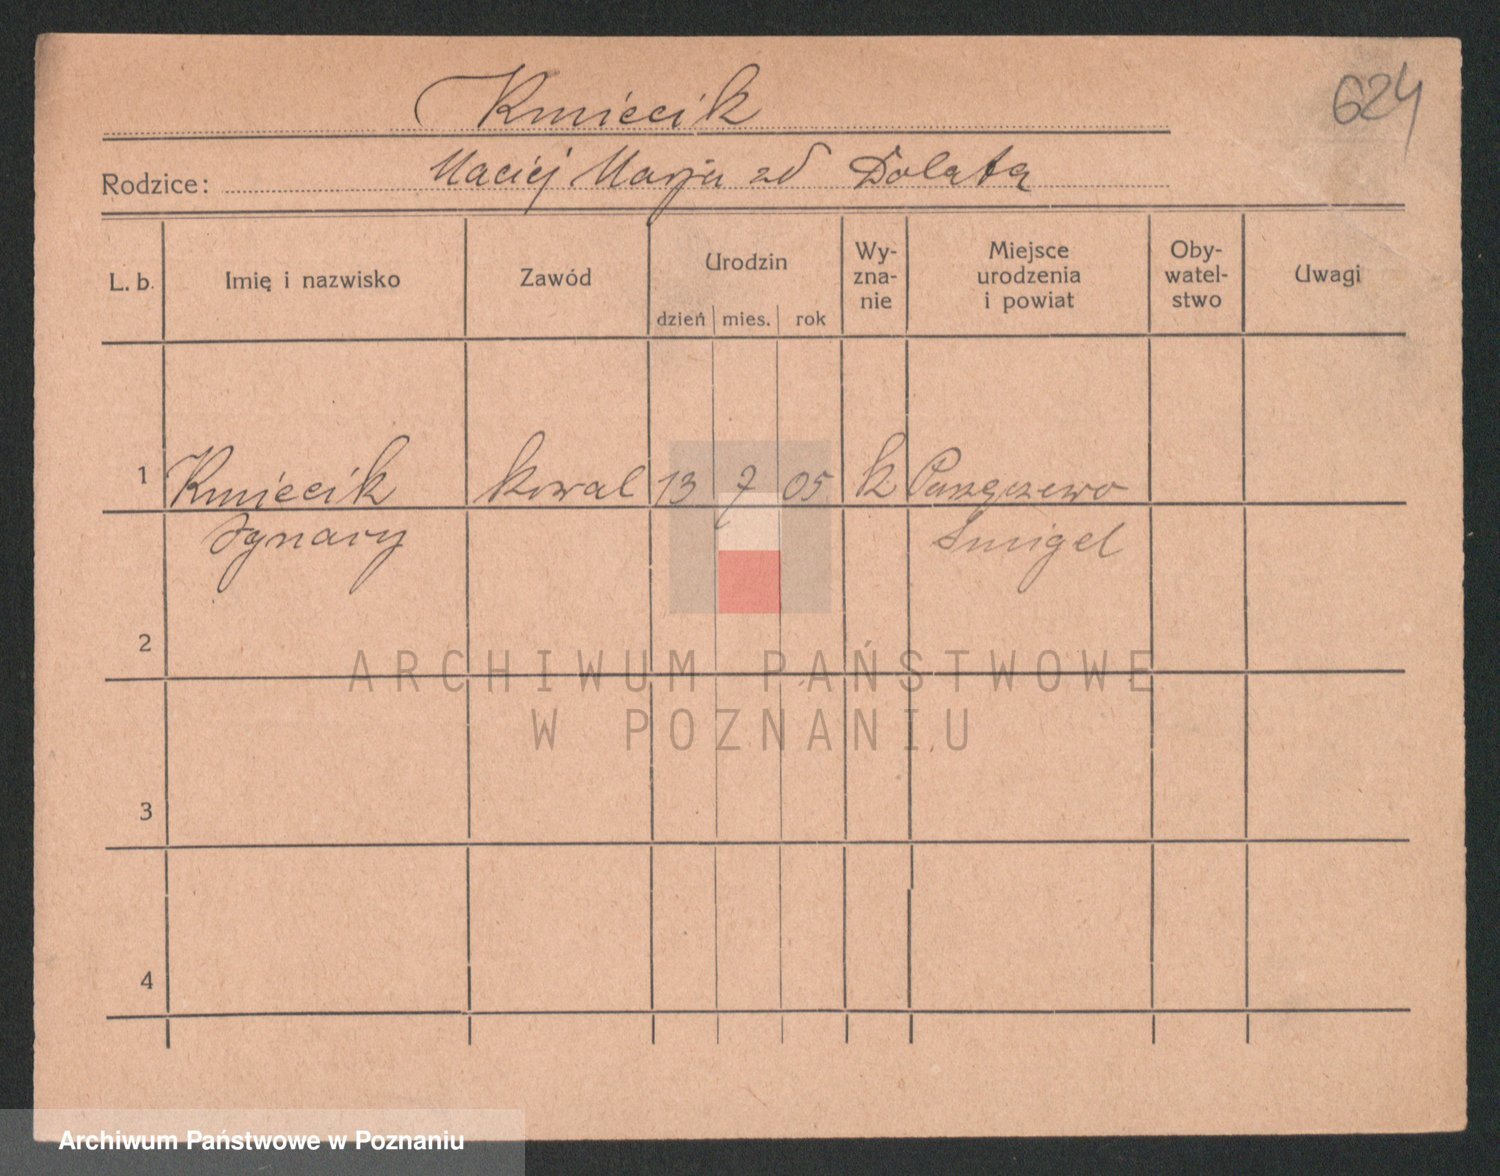 Kmiecik
624
Rodzice: Maciej Marja zd Dolata
L. b. Imię i nazwisko Zawód Urodzin dzień mies. rok Wy- zna- nie Miejsce urodzenia i powiat Oby- watel- stwo Uwagi
1 Kmiecik kowal 13 7 05 k
Ignacy Smigel
2
ARCHIWUM PAŃSTWOWE
W POZNANIU
3
4
Archiwum Państwowe w Poznaniu